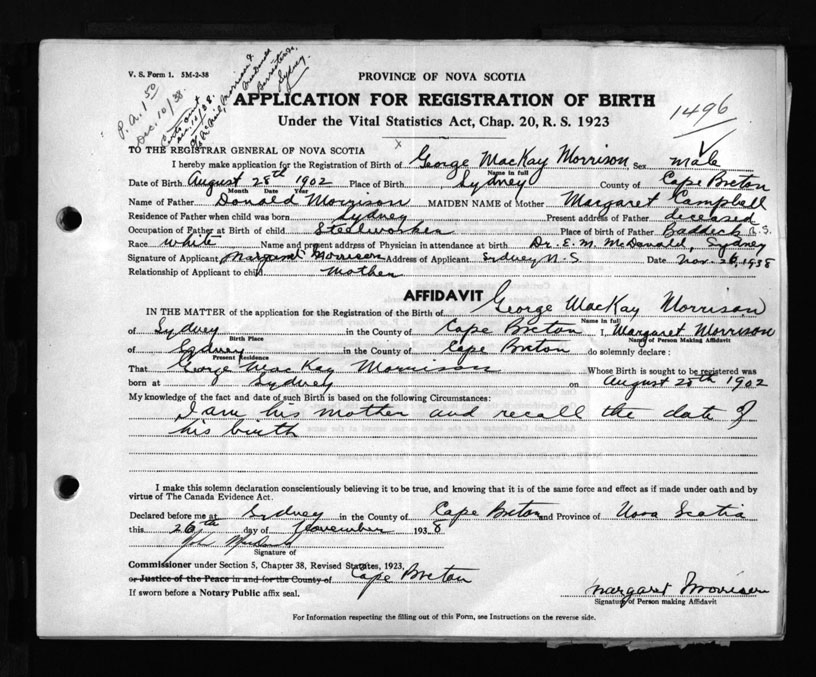 V. S. Form 1. 5M-2-38
P. A. 1 50
Dec. 10/38.
Sydney
PROVINCE OF NOVA SCOTIA
APPLICATION FOR REGISTRATION OF BIRTH
1496
Under the Vital Statistics Act, Chap. 20, R. S. 1923
TO THE REGISTRAR GENERAL OF NOVA SCOTIA x
I hereby make application for the Registration of Birth of George MacKay Morrison, Sex male
Name in full
Date of Birth August 28th 1902 Place of Birth Sydney County of Cape Breton
Month Date Year
Name of Father Donald Morrison MAIDEN NAME of Mother Margaret Campbell
Residence of Father when child was born Sydney Present address of Father deceased
Occupation of Father at Birth of child Steelworker Place of birth of Father Baddeck
Race white Name and present address of Physician in attendance at birth Dr. E. M. McDonald, Sydney
Signature of Applicant Margaret Morrison Address of Applicant Sydney N.S. Date Nov. 26, 1938
Relationship of Applicant to child Mother
AFFIDAVIT
IN THE MATTER of the application for the Registration of the Birth of George MacKay Morrison
Name in full
of Sydney in the County of Cape Breton I, Margaret Morrison
Birth Place Name of Person Making Affidavit
of Sydney in the County of Cape Breton do solemnly declare :
Present Residence
That George MacKay Morrison Whose Birth is sought to be registered was
born at Sydney on August 28th 1902
My knowledge of the fact and date of such Birth is based on the following Circumstances:
I am his mother and recall the date of
his birth
I make this solemn declaration conscientiously believing it to be true, and knowing that it is of the same force and effect as if made under oath and by
virtue of The Canada Evidence Act.
Declared before me at Sydney in the County of Cape Breton and Province of Nova Scotia
this 26th day of November 1938
Signature of
Commissioner under Section 5, Chapter 38, Revised Statutes, 1923,
or Justice of the Peace in and for the County of Cape Breton
If sworn before a Notary Public affix seal.
Margaret Morrison
Signature of Person making Affidavit
For Information respecting the filling out of this Form, see Instructions on the reverse side.